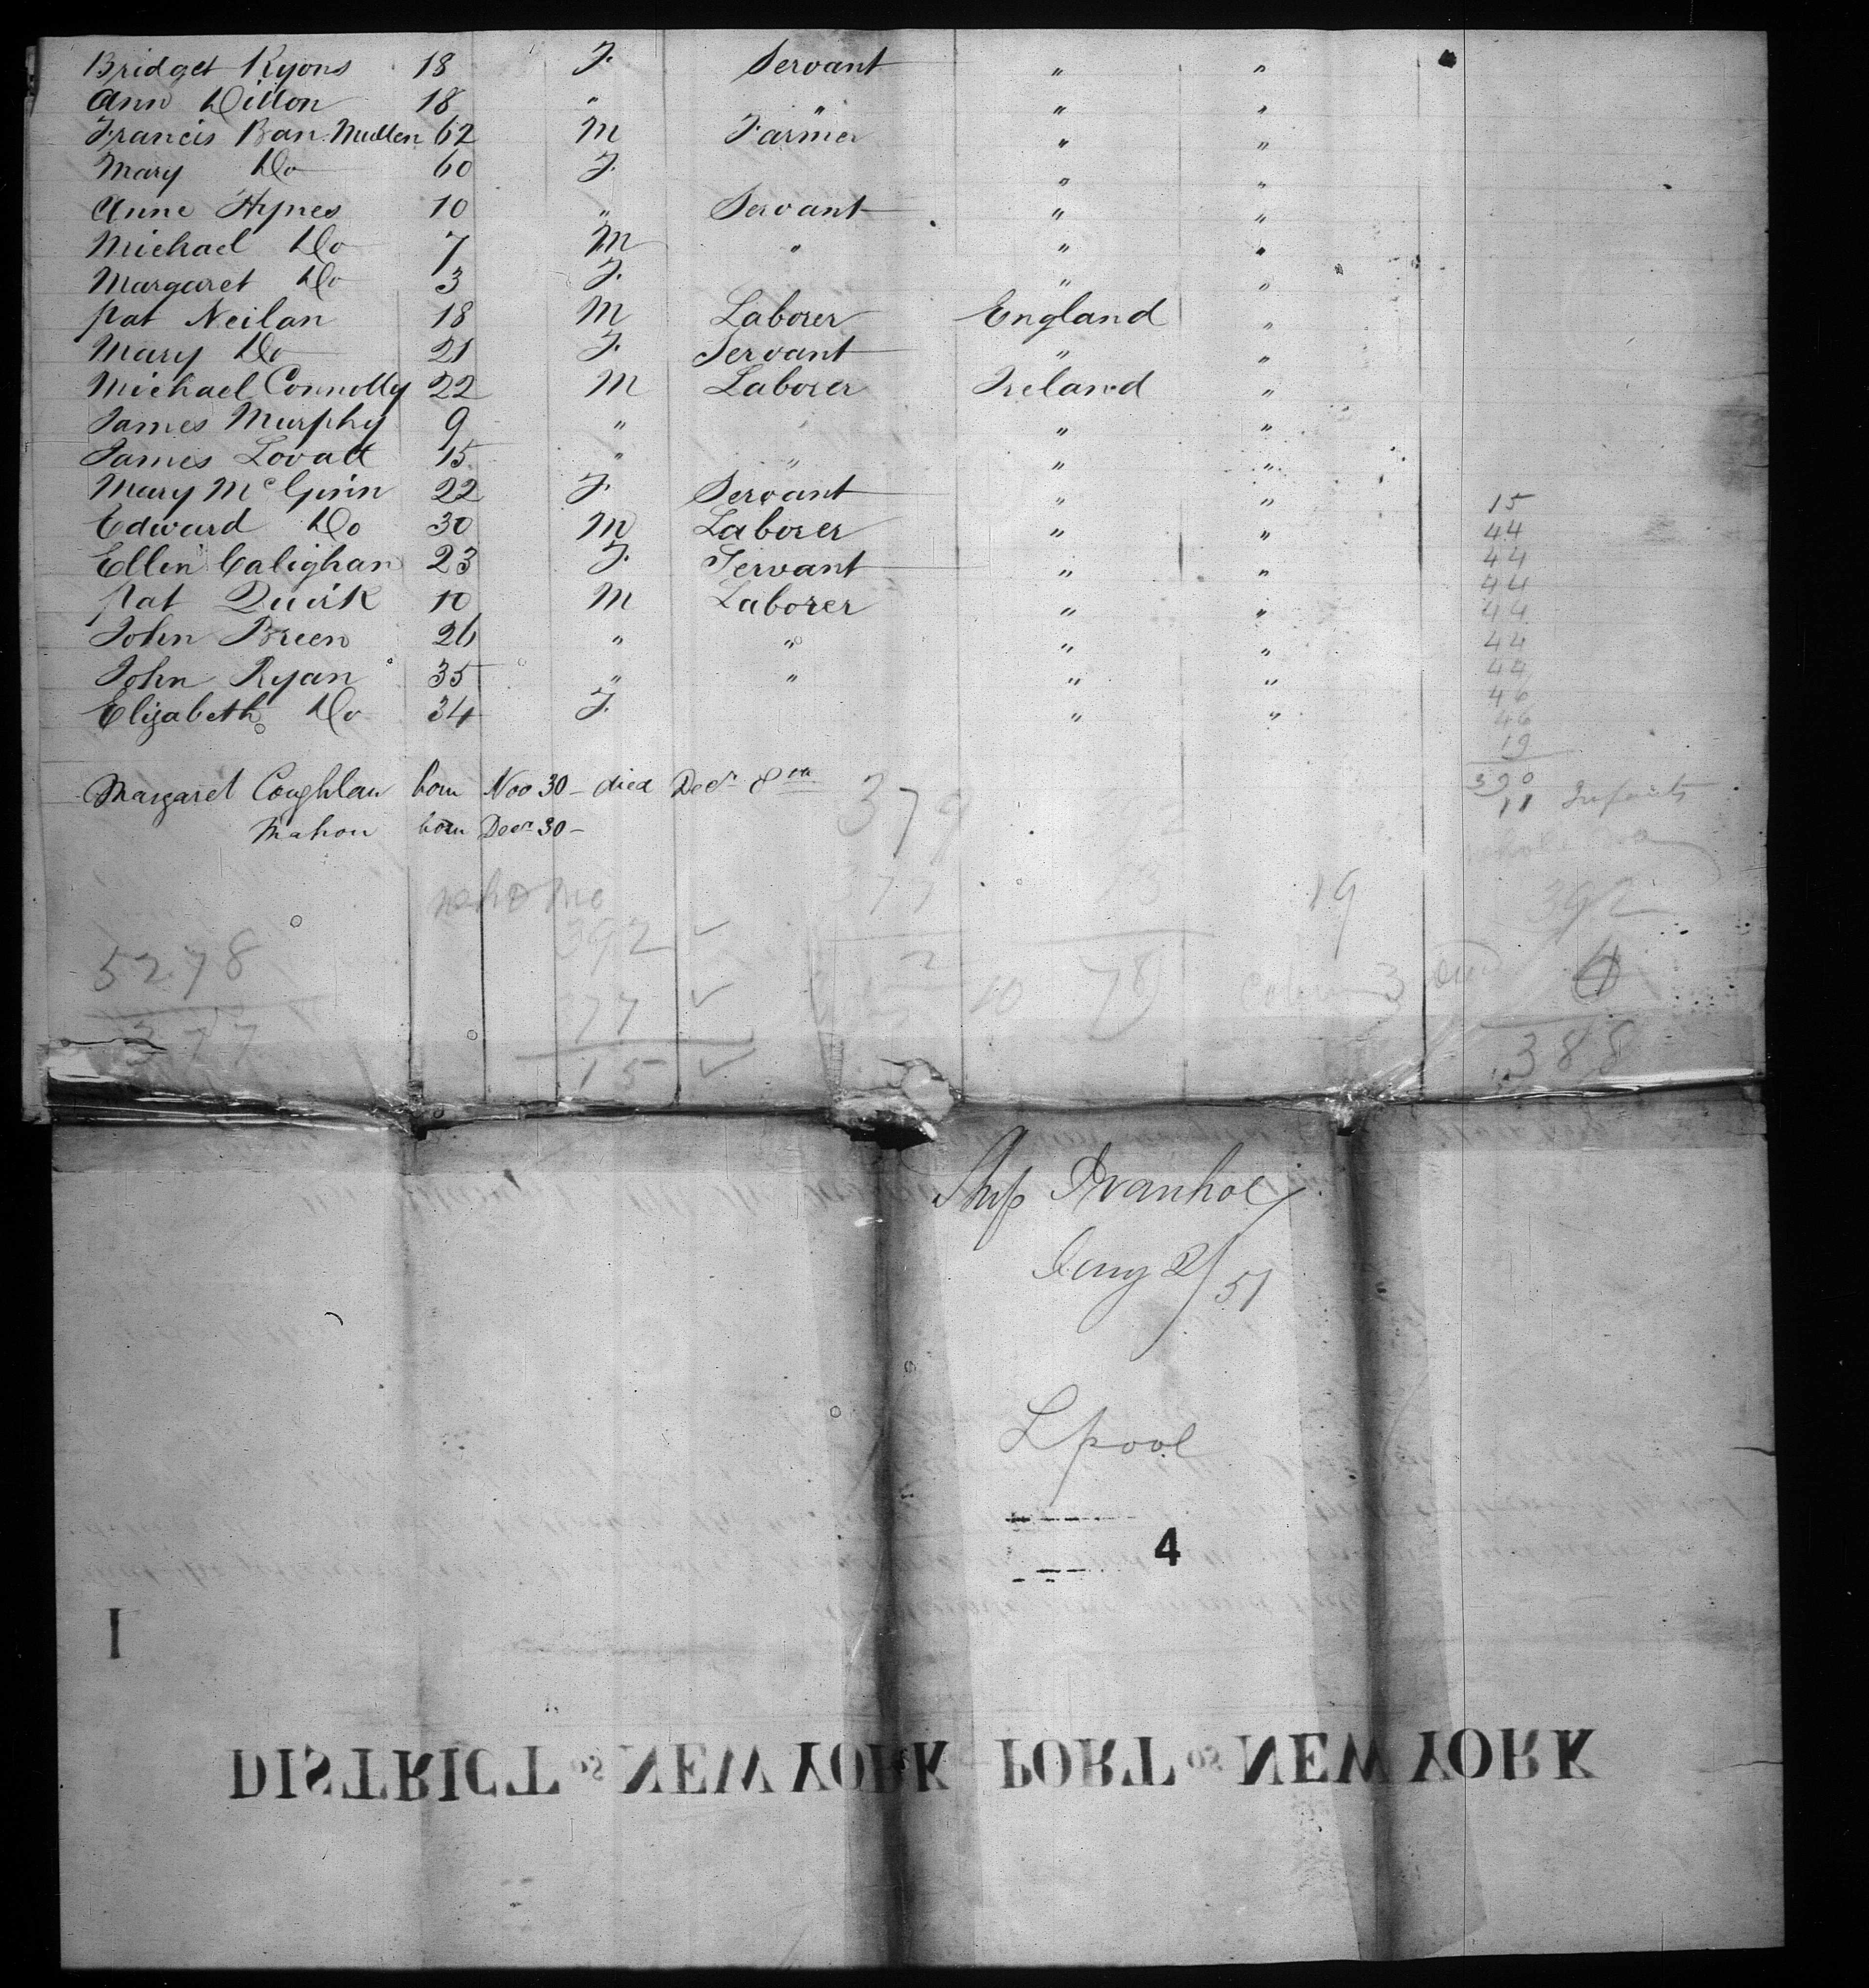 Bridget Kyons 18 F. Servant " "
Ann Dillon 18 " " " "
Francis Ban Mullen 62 M Farmer " "
Mary Do 60 F. " "
Anne Hynes 10 " Servant " "
Michael Do 7 M " " "
Margaret Do 3 F. " "
Pat Neilan 18 M Laborer England "
Mary Do 21 F. Servant " "
Michael Connolly 22 M Laborer Ireland "
James Murphy 9 " " " "
James Lovatt 15 " " " "
Mary McGinn 22 F. Servant " "
Edward Do 30 M Laborer " "
Ellen Calighan 23 F. Servant " "
Pat Quirk 10 M Laborer " "
John Breen 26 " " " "
John Ryan 35 " " " "
Elizabeth Do 34 F. " "
15
44
44
44
44
44
44
46
46
19
390
11 Infants
Margaret Coughlan born Nov 30 - died Decr 8th
Mahon born Decr 30 -
379
377
2
73
78
10
19
392
377
15
5278
377
392
4
388
Ship Ivanhoe
Jany 2/51
Lpool
4
I
DISTRICT OF NEW YORK PORT OF NEW YORK